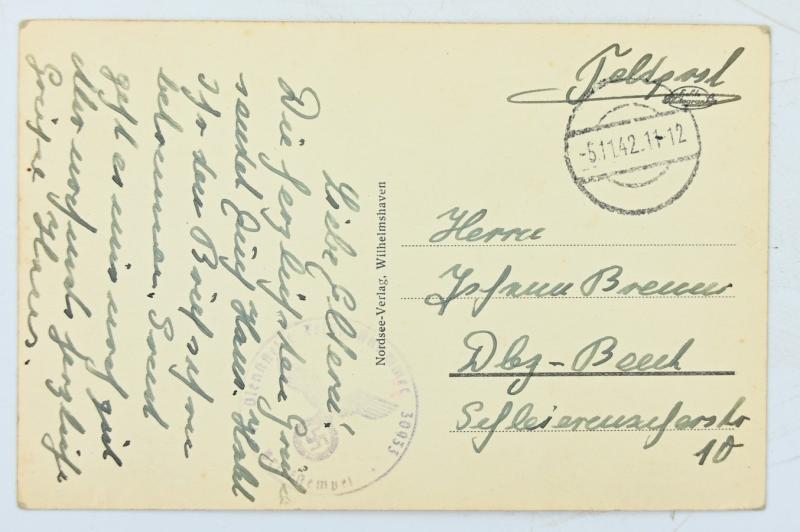 Liebe Eltern!
Die herzlichsten Grüße
sendet Euch Hans. Habt
Ihr den Brief schon
bekommen. Sonst
geht es mir noch gut
Also nochmals herzliche
Grüße Hans.
Nordsee-Verlag, Wilhelmshaven
Feldpost
Echte
-5.11.42.11-12
Herrn
Johann Bremer
Dbg-Beeck
10
30933